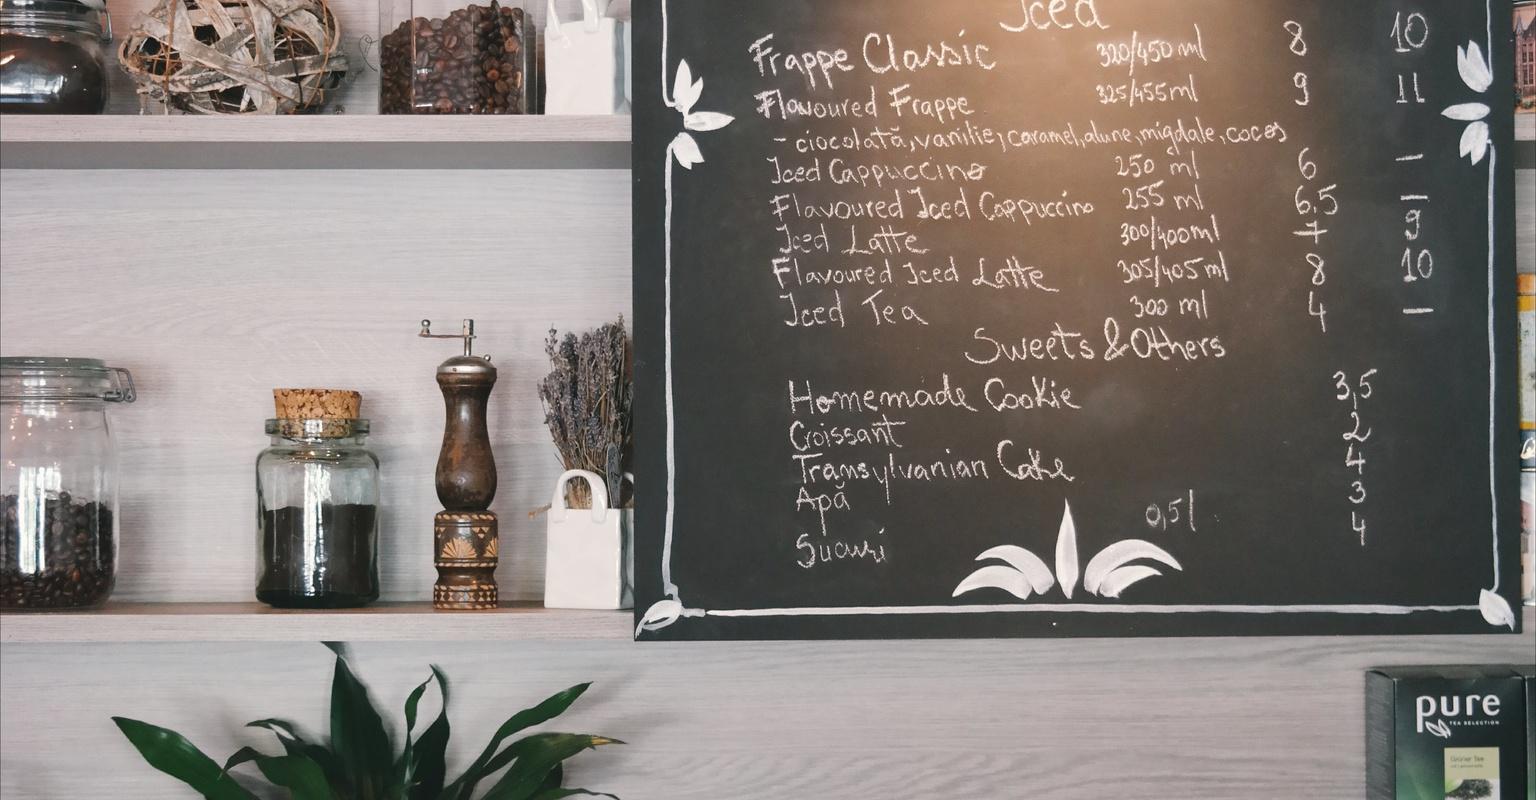 Iced
Frappe Classic 320/450 ml 8 10
Flavoured Frappe 325/455 ml 9 11
- ciocolată, vanilie, caramel, alune, migdale, cocos
Iced Cappuccino 250 ml 6 —
Flavoured Iced Cappuccino 255 ml 6.5 —
Iced Latte 300/400 ml 7 9
Flavoured Iced Latte 305/405 ml 8 10
Iced Tea 300 ml 4 —
Sweets & Others
Homemade Cookie 3,5
Croissant 2
Transylvanian Cake 4
Apă 0,5 l 3
Sucuri 4
pure
TEA SELECTION